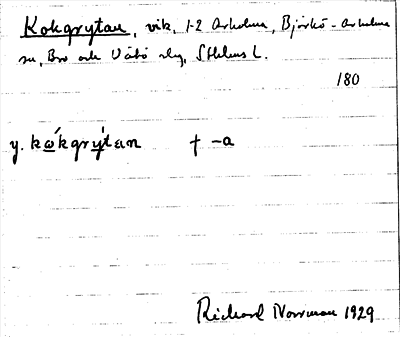 Kokgrytan, vik, 1-2 Arholma, Björkö-Arholma
sn, Bro och Vätö slg, Sthlms L.
180
y. kⱥ́kgrýtan † -a
Richard Norrman 1929